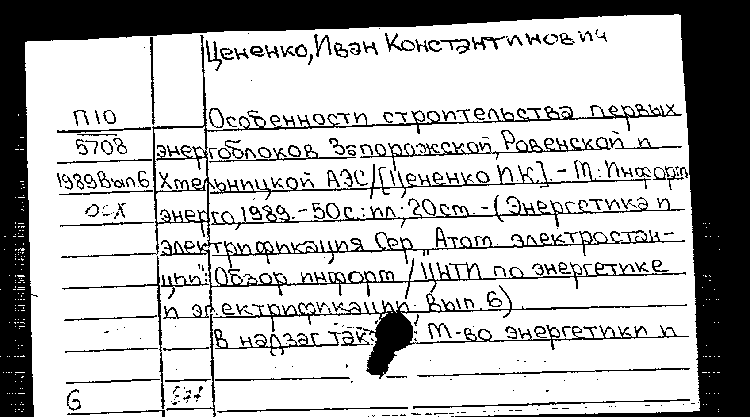 Цененко, Иван Константинович
П10
5708
1989 Вып 6
ОСХ
Особенности строительства первых
энергоблоков Запорожской, Ровенской и
Хмельницкой АЭС / [Цененко И.К.]. - М.: Информ
энерго, 1989. - 50 с.: ил.; 20 см. - (Энергетика и
электрификация. Сер. "Атом. электростан-
ции": Обзор. информ / ЦНТИ по энергетике
и электрификации; Вып. 6).
В надзаг. так М-во энергетики и
6